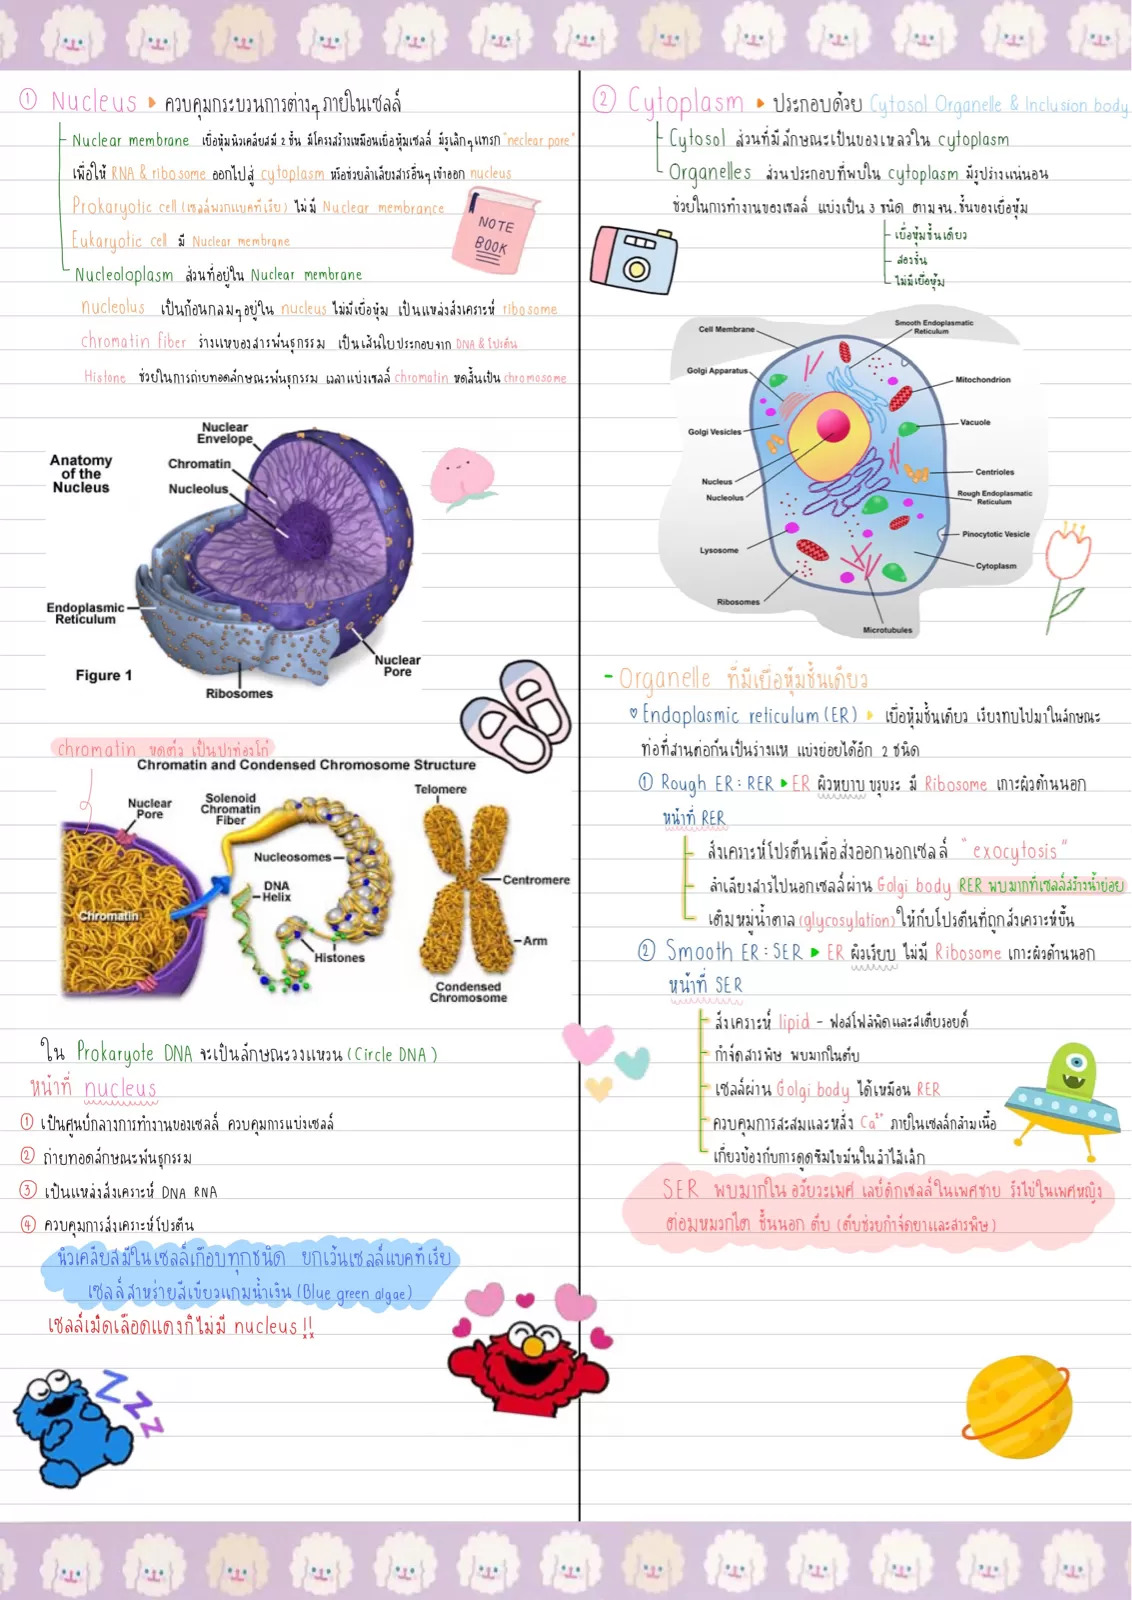 ① Nucleus ▸ ควบคุมกระบวนการต่างๆ ภายในเซลล์
Nuclear membrane เยื่อหุ้มนิวเคลียสมี 2 ชั้น มีโครงสร้างเหมือนเยื่อหุ้มเซลล์ มีรูเล็กๆ แทรก "neclear pore"
เพื่อให้ RNA & ribosome ออกไปสู่ cytoplasm หรือช่วยลำเลียงสารอื่นๆ เข้าออก nucleus
Prokaryotic cell (เซลล์พวกแบคทีเรีย) ไม่มี Nuclear membrance
Eukaryotic cell มี Nuclear membrane
Nucleoloplasm ส่วนที่อยู่ใน Nuclear membrane
nucleolus เป็นก้อนกลมๆ อยู่ใน nucleus ไม่มีเยื่อหุ้ม เป็นแหล่งสังเคราะห์ ribosome
chromatin fiber ร่างแหของสารพันธุกรรม เป็นเส้นใยประกอบจาก DNA & โปรตีน
Histone ช่วยในการถ่ายทอดลักษณะพันธุกรรม เวลาแบ่งเซลล์ chromatin หดสั้นเป็น chromosome
NOTE
BOOK
Anatomy
of the
Nucleus
Nuclear
Envelope
Chromatin
Nucleolus
Endoplasmic
Reticulum
Figure 1
Ribosomes
Nuclear
Pore
chromatin หดตัว เป็นปาท่องโก๋
Chromatin and Condensed Chromosome Structure
Nuclear
Pore
Solenoid
Chromatin
Fiber
Telomere
Nucleosomes
DNA
Helix
Centromere
Chromatin
Histones
Arm
Condensed
Chromosome
ใน Prokaryote DNA จะเป็นลักษณะวงแหวน (Circle DNA)
หน้าที่ nucleus
① เป็นศูนย์กลางการทำงานของเซลล์ ควบคุมการแบ่งเซลล์
② ถ่ายทอดลักษณะพันธุกรรม
③ เป็นแหล่งสังเคราะห์ DNA RNA
④ ควบคุมการสังเคราะห์โปรตีน
นิวเคลียสมีในเซลล์เกือบทุกชนิด ยกเว้นเซลล์แบคทีเรีย
เซลล์สาหร่ายสีเขียวแกมน้ำเงิน (Blue green algae)
เซลล์เม็ดเลือดแดงก็ไม่มี nucleus !!
ZZZ
② Cytoplasm ▸ ประกอบด้วย Cytosol Organelle & Inclusion body
Cytosol ส่วนที่มีลักษณะเป็นของเหลวใน cytoplasm
Organelles ส่วนประกอบที่พบใน cytoplasm มีรูปร่างแน่นอน
ช่วยในการทำงานของเซลล์ แบ่งเป็น 3 ชนิด ตามจน.ชั้นของเยื่อหุ้ม
เยื่อหุ้มชั้นเดียว
สองชั้น
ไม่มีเยื่อหุ้ม
Cell Membrane
Smooth Endoplasmatic
Reticulum
Golgi Apparatus
Mitochondrion
Golgi Vesicles
Vacuole
Nucleus
Centrioles
Nucleolus
Rough Endoplasmatic
Reticulum
Lysosome
Pinocytotic Vesicle
Cytoplasm
Ribosomes
Microtubules
- Organelle ที่มีเยื่อหุ้มชั้นเดียว
♡ Endoplasmic reticulum (ER) ▸ เยื่อหุ้มชั้นเดียว เรียงทบไปมาในลักษณะ
ท่อที่สานต่อกันเป็นร่างแห แบ่งย่อยได้อีก 2 ชนิด
① Rough ER : RER ▸ ER ผิวหยาบ ขรุขระ มี Ribosome เกาะผิวด้านนอก
หน้าที่ RER
สังเคราะห์โปรตีนเพื่อส่งออกนอกเซลล์ "exocytosis"
ลำเลียงสารไปนอกเซลล์ผ่าน Golgi body RER พบมากที่เซลล์สร้างน้ำย่อย
เติมหมู่น้ำตาล (glycosylation) ให้กับโปรตีนที่ถูกสังเคราะห์ขึ้น
② Smooth ER : SER ▸ ER ผิวเรียบ ไม่มี Ribosome เกาะผิวด้านนอก
หน้าที่ SER
สังเคราะห์ lipid - ฟอสโฟลิพิดและสเตียรอยด์
กำจัดสารพิษ พบมากในตับ
เซลล์ผ่าน Golgi body ได้เหมือน RER
ควบคุมการสะสมและหลั่ง Ca²⁺ ภายในเซลล์กล้ามเนื้อ
เกี่ยวข้องกับการดูดซึมไขมันในลำไส้เล็ก
SER พบมากใน อวัยวะเพศ เลย์ดิกเซลล์ในเพศชาย รังไข่ในเพศหญิง
ต่อมหมวกไต ชั้นนอก ตับ (ตับช่วยกำจัดยาและสารพิษ)